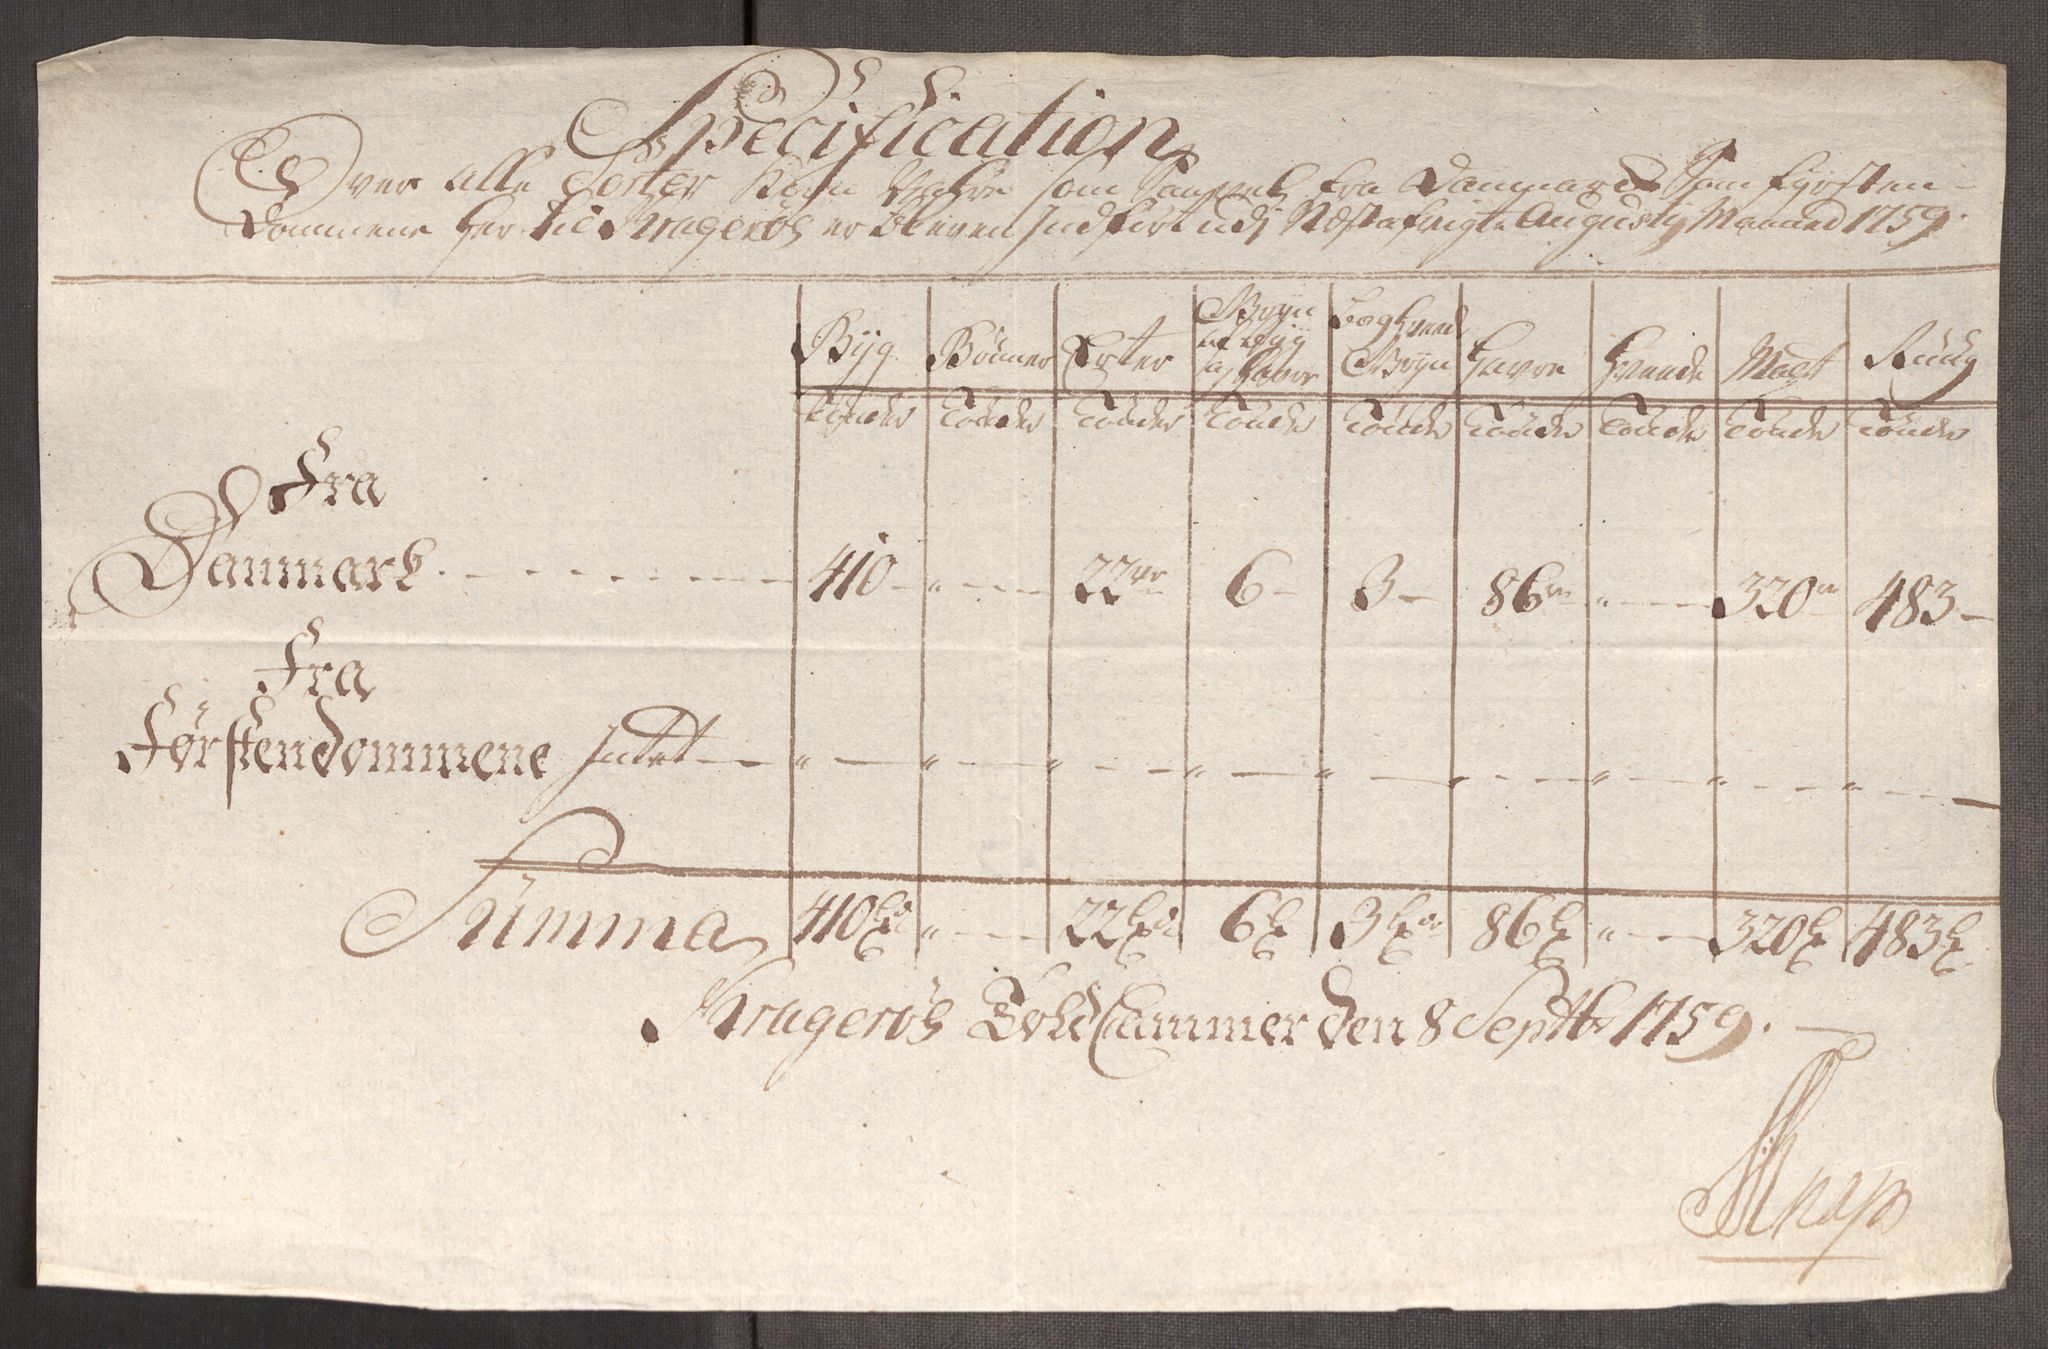 Specification
Over alle Sorter Korn Vahre som Saavel fra Danmarck Som Fyrsten-
dommene her til Kragerøe er bleven Indført udj Næstafvigte Augustij Maaned 1759.
Byg Bönner Erter Gryn af Byg og Havre Boghvede Gryn Havre Hvede Malt Rüug
Tönder Tönder Tönder Tönder Tönder Tönder Tönder Tönder Tönder
Fra
Danmark 410 " 22 6 3 86 " 320 483
Fra
Førstendommene Intet " " " " " " " " "
Summa 410 " 22 6 3 86 " 320 483
Kragerøe Told Cammer den 8 Septbr 1759.